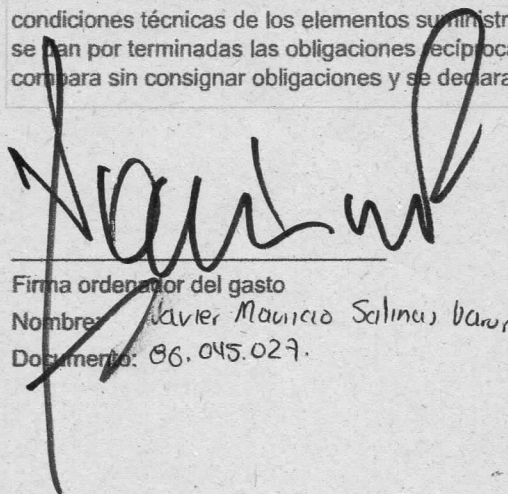 condiciones técnicas de los elementos suministr
se dan por terminadas las obligaciones recíproca
compara sin consignar obligaciones y se declara
Firma ordenador del gasto
Nombre: Javier Mauricio Salinas
Documento: 86.045.027.